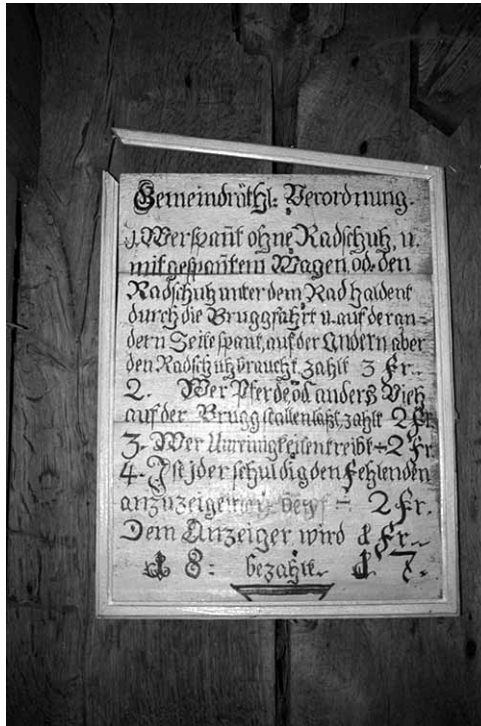 Gemeindräthl: Verordnung.
1. Wer spant ohne Radschuh, u.
mit gespantem Wagen, od. den
Radschuh unter dem Rad haldent
durch die Brugg fährt u. auf der an=
dern Seite spant, auf der Andern aber
den Radschuh braucht, zahlt 3 Fr..
2. Wer Pferde, od. anders Vieh
auf der Brugg stallen laßt, zahlt 2 Fr
3. Wer Unreinigkeiten treibt ÷ 2 Fr
4. Ist jder schuldig den Fehlenden
anzuzeigen = 2 Fr.
Dem Anzeiger wird 1 Fr..
18: bezahlt. 17.